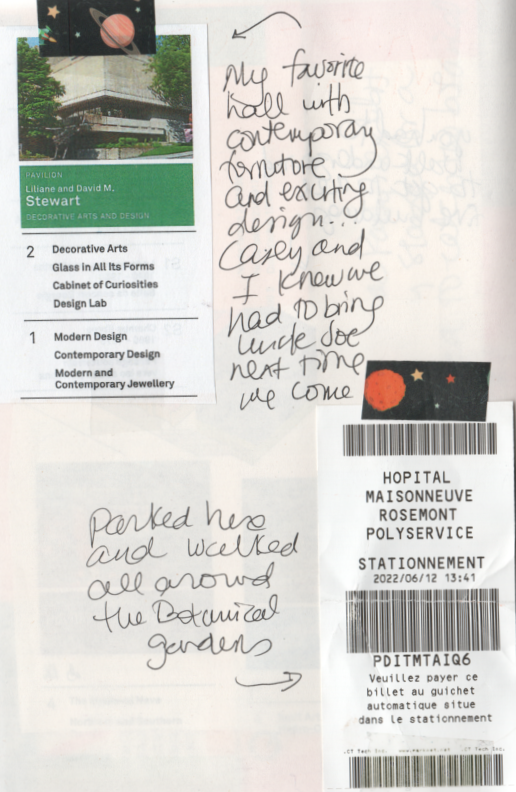 PAVILION
Liliane and David M.
Stewart
DECORATIVE ARTS AND DESIGN
2 Decorative Arts
Glass in All Its Forms
Cabinet of Curiosities
Design Lab
1 Modern Design
Contemporary Design
Modern and
Contemporary Jewellery
My favorite
hall with
contemporary
furniture
and exciting
design...
Casey and
I knew we
had to bring
Uncle Joe
next time
we come
Parked here
and walked
all around
the Botanical
gardens
HOPITAL
MAISONNEUVE
ROSEMONT
POLYSERVICE
STATIONNEMENT
2022/06/12 13:41
PDITMTAIQ6
Veuillez payer ce
billet au guichet
automatique situe
dans le stationnement